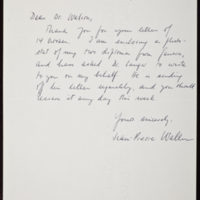 Dear Dr. Watson,
Thank you for your letter of
14 I am enclosing a photo-
stat of my two diplomas from Geneva,
and have asked Dr. Lange to write
to you on my behalf. He is sending
his letter separately, and you should
receive it any day this week
Yours sincerely,
Jean-Pierre